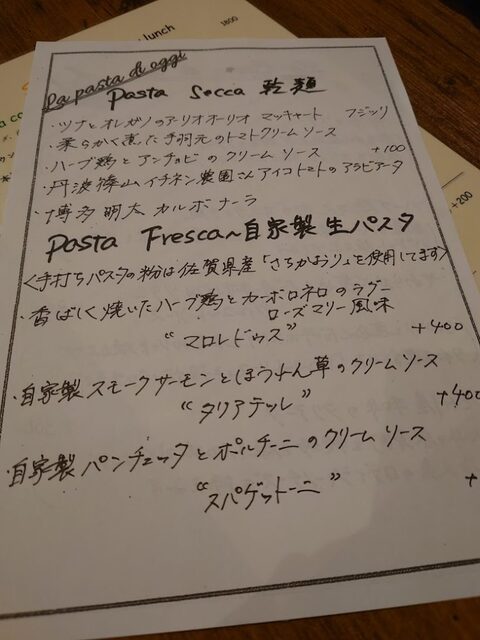 lunch
1800
La pasta di oggi
Pasta Secca 乾麺
・ツナとオレガノのアーリオオーリオ マッキャート フジッリ
・柔らかく煮た手羽元のトマトクリームソース
・ハーブ鶏とアンチョビのクリームソース +100
・丹波篠山イチネン農園さんアイコトマトのアラビアータ
・博多明太カルボナーラ
+200
Pasta Fresca~自家製生パスタ
<手打ちパスタの粉は佐賀県産「さちかおり」を使用してます>
・香ばしく焼いたハーブ鶏とカーボロネロのラグー
ローズマリー風味
"マロレドゥス" +400
・自家製スモークサーモンとほうれん草のクリームソース
"タリアテッレ" +400
・自家製パンチェッタとポルチーニのクリームソース
"スパゲットーニ" +